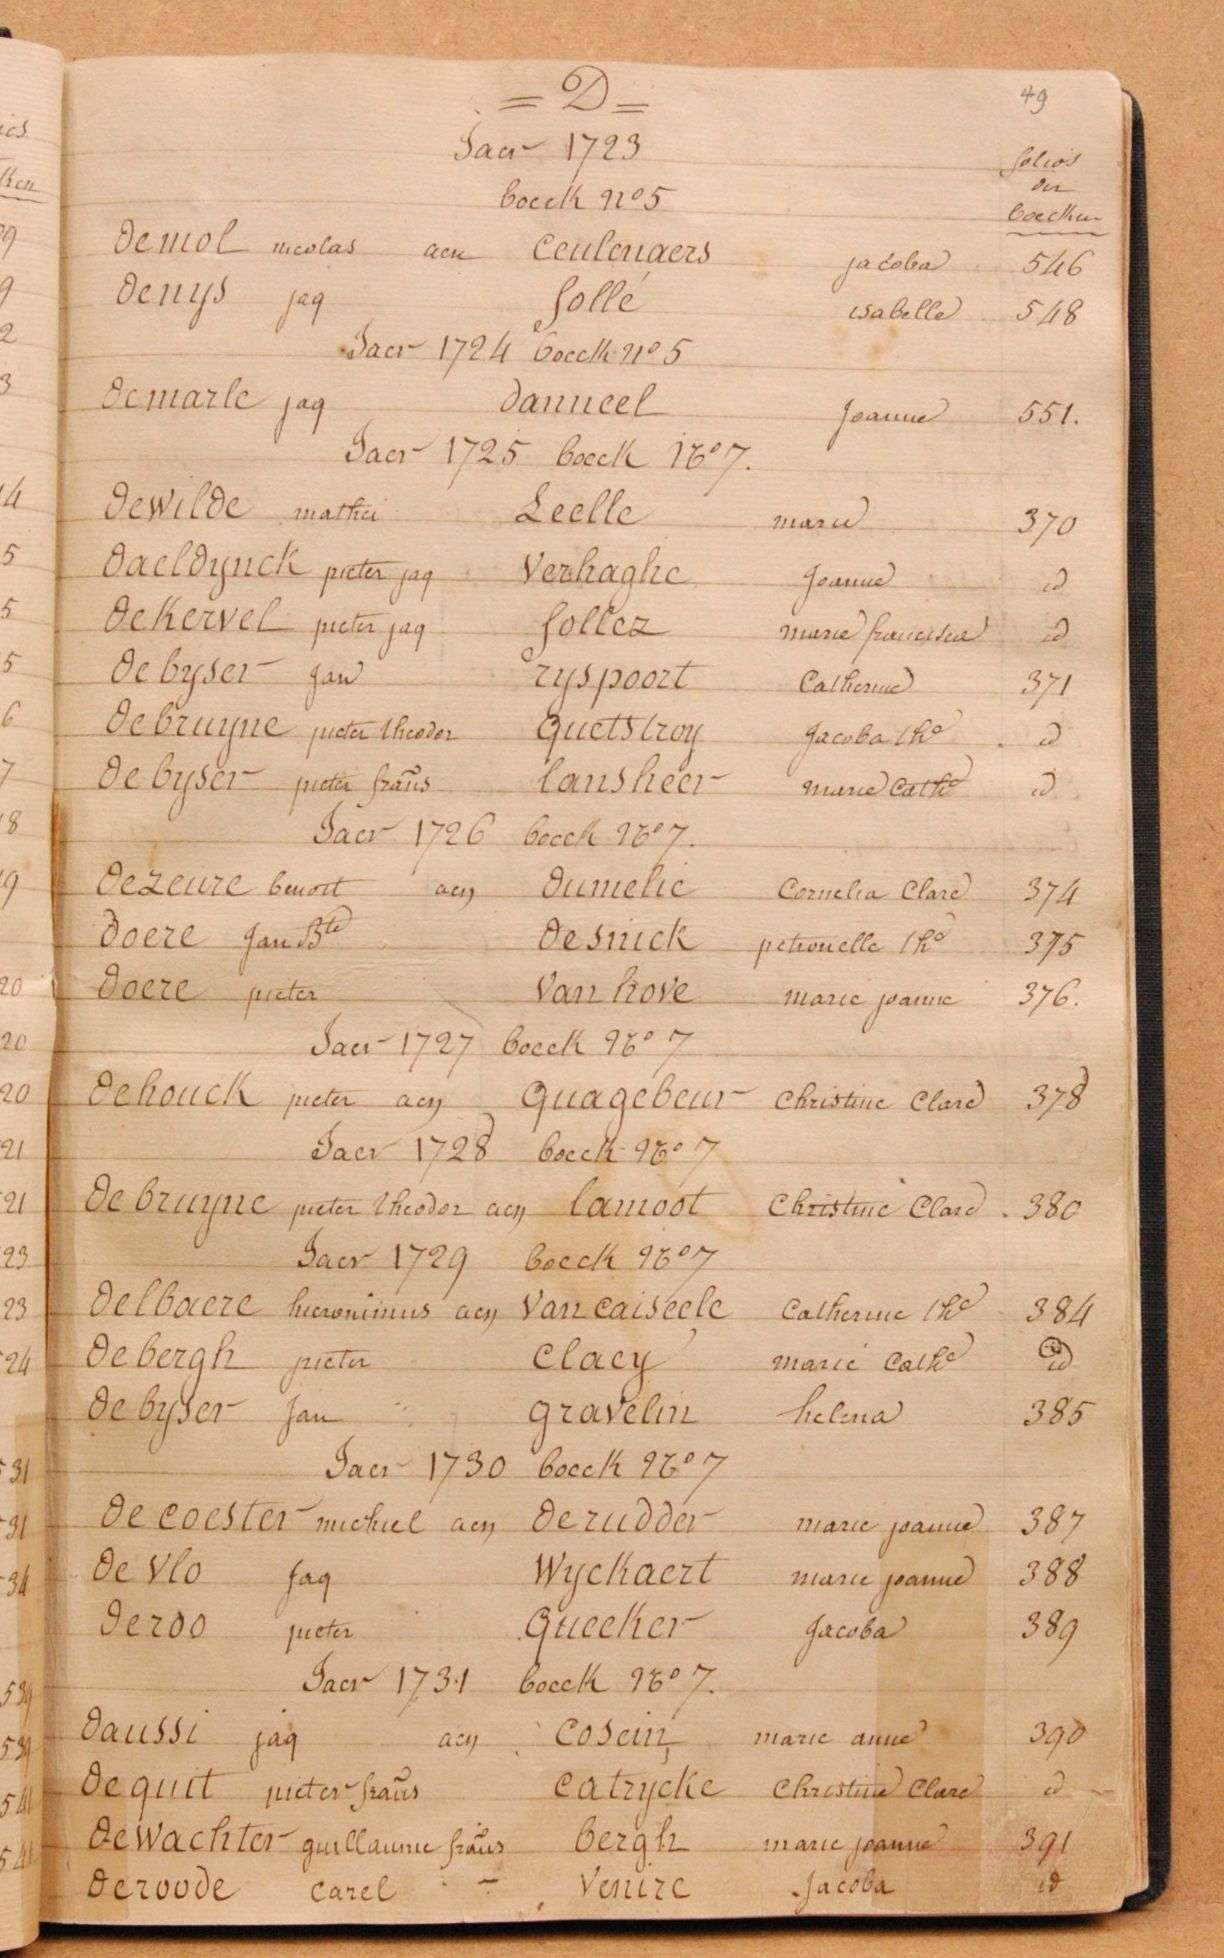 = D = 49
Jaer 1723 folios
boeck nº 5 der
boecken
Demol nicolas aen Ceulenaers jacoba 546
Denys jaq follé isabelle 548
Jaer 1724 boeck nº 5
Demarle jaq Danneel Joanne 551.
Jaer 1725 boeck Nº 7.
Dewilde mathei Leelle marie 370
Daeldynck pieter jaq Verhaghe Joanne id
DeKervel pieter jaq follez marie francisca id
De byser Jan ryspoort Catherine 371
Debruyne pieter theodor Quetstroy Jacoba thº id
De byser pieter frans lansheer marie Cathe id
Jaer 1726 boeck Nº 7.
Dezeure benoit aen Dumelie Cornelia Clare 374
Doere Jan Bte Desnick petronelle thº 375
Doere pieter Van hove marie joanne 376.
Jaer 1727 boeck Nº 7
Dehouck pieter aen Quagebeur Christine Clare 378
Jaer 1728 boeck Nº 7
De bruyne pieter theodor aen lamoot Christine Clare 380
Jaer 1729 boeck Nº 7
Delbaere hieronimus aen Van caiseele Catherine the 384
De bergh pieter Claey marie Cathe id
De byser Jan gravelin helena 385
Jaer 1730 boeck Nº 7
De coester michiel aen De rudder marie joanne 387
De Vlo Jaq Wyckaert marie joanne 388
De roo pieter Queeker Jacoba 389
Jaer 1731 boeck Nº 7.
Daussi jaq aen Cosein marie anne 390
De quit pieter frans Catrycke Christine Clare id
Dewachter guillaume frans bergh marie joanne 391
De roode Carel - Venire Jacoba id